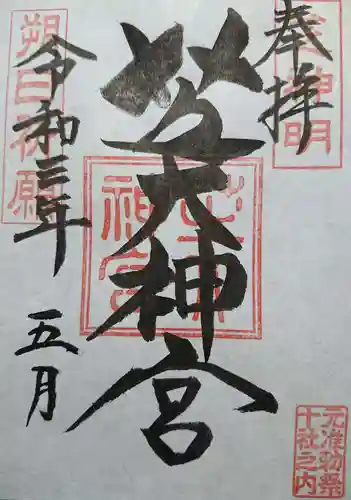 奉拝
芝大神宮
令和三年
五月
朔日祈願
元准勅祭
十社之内